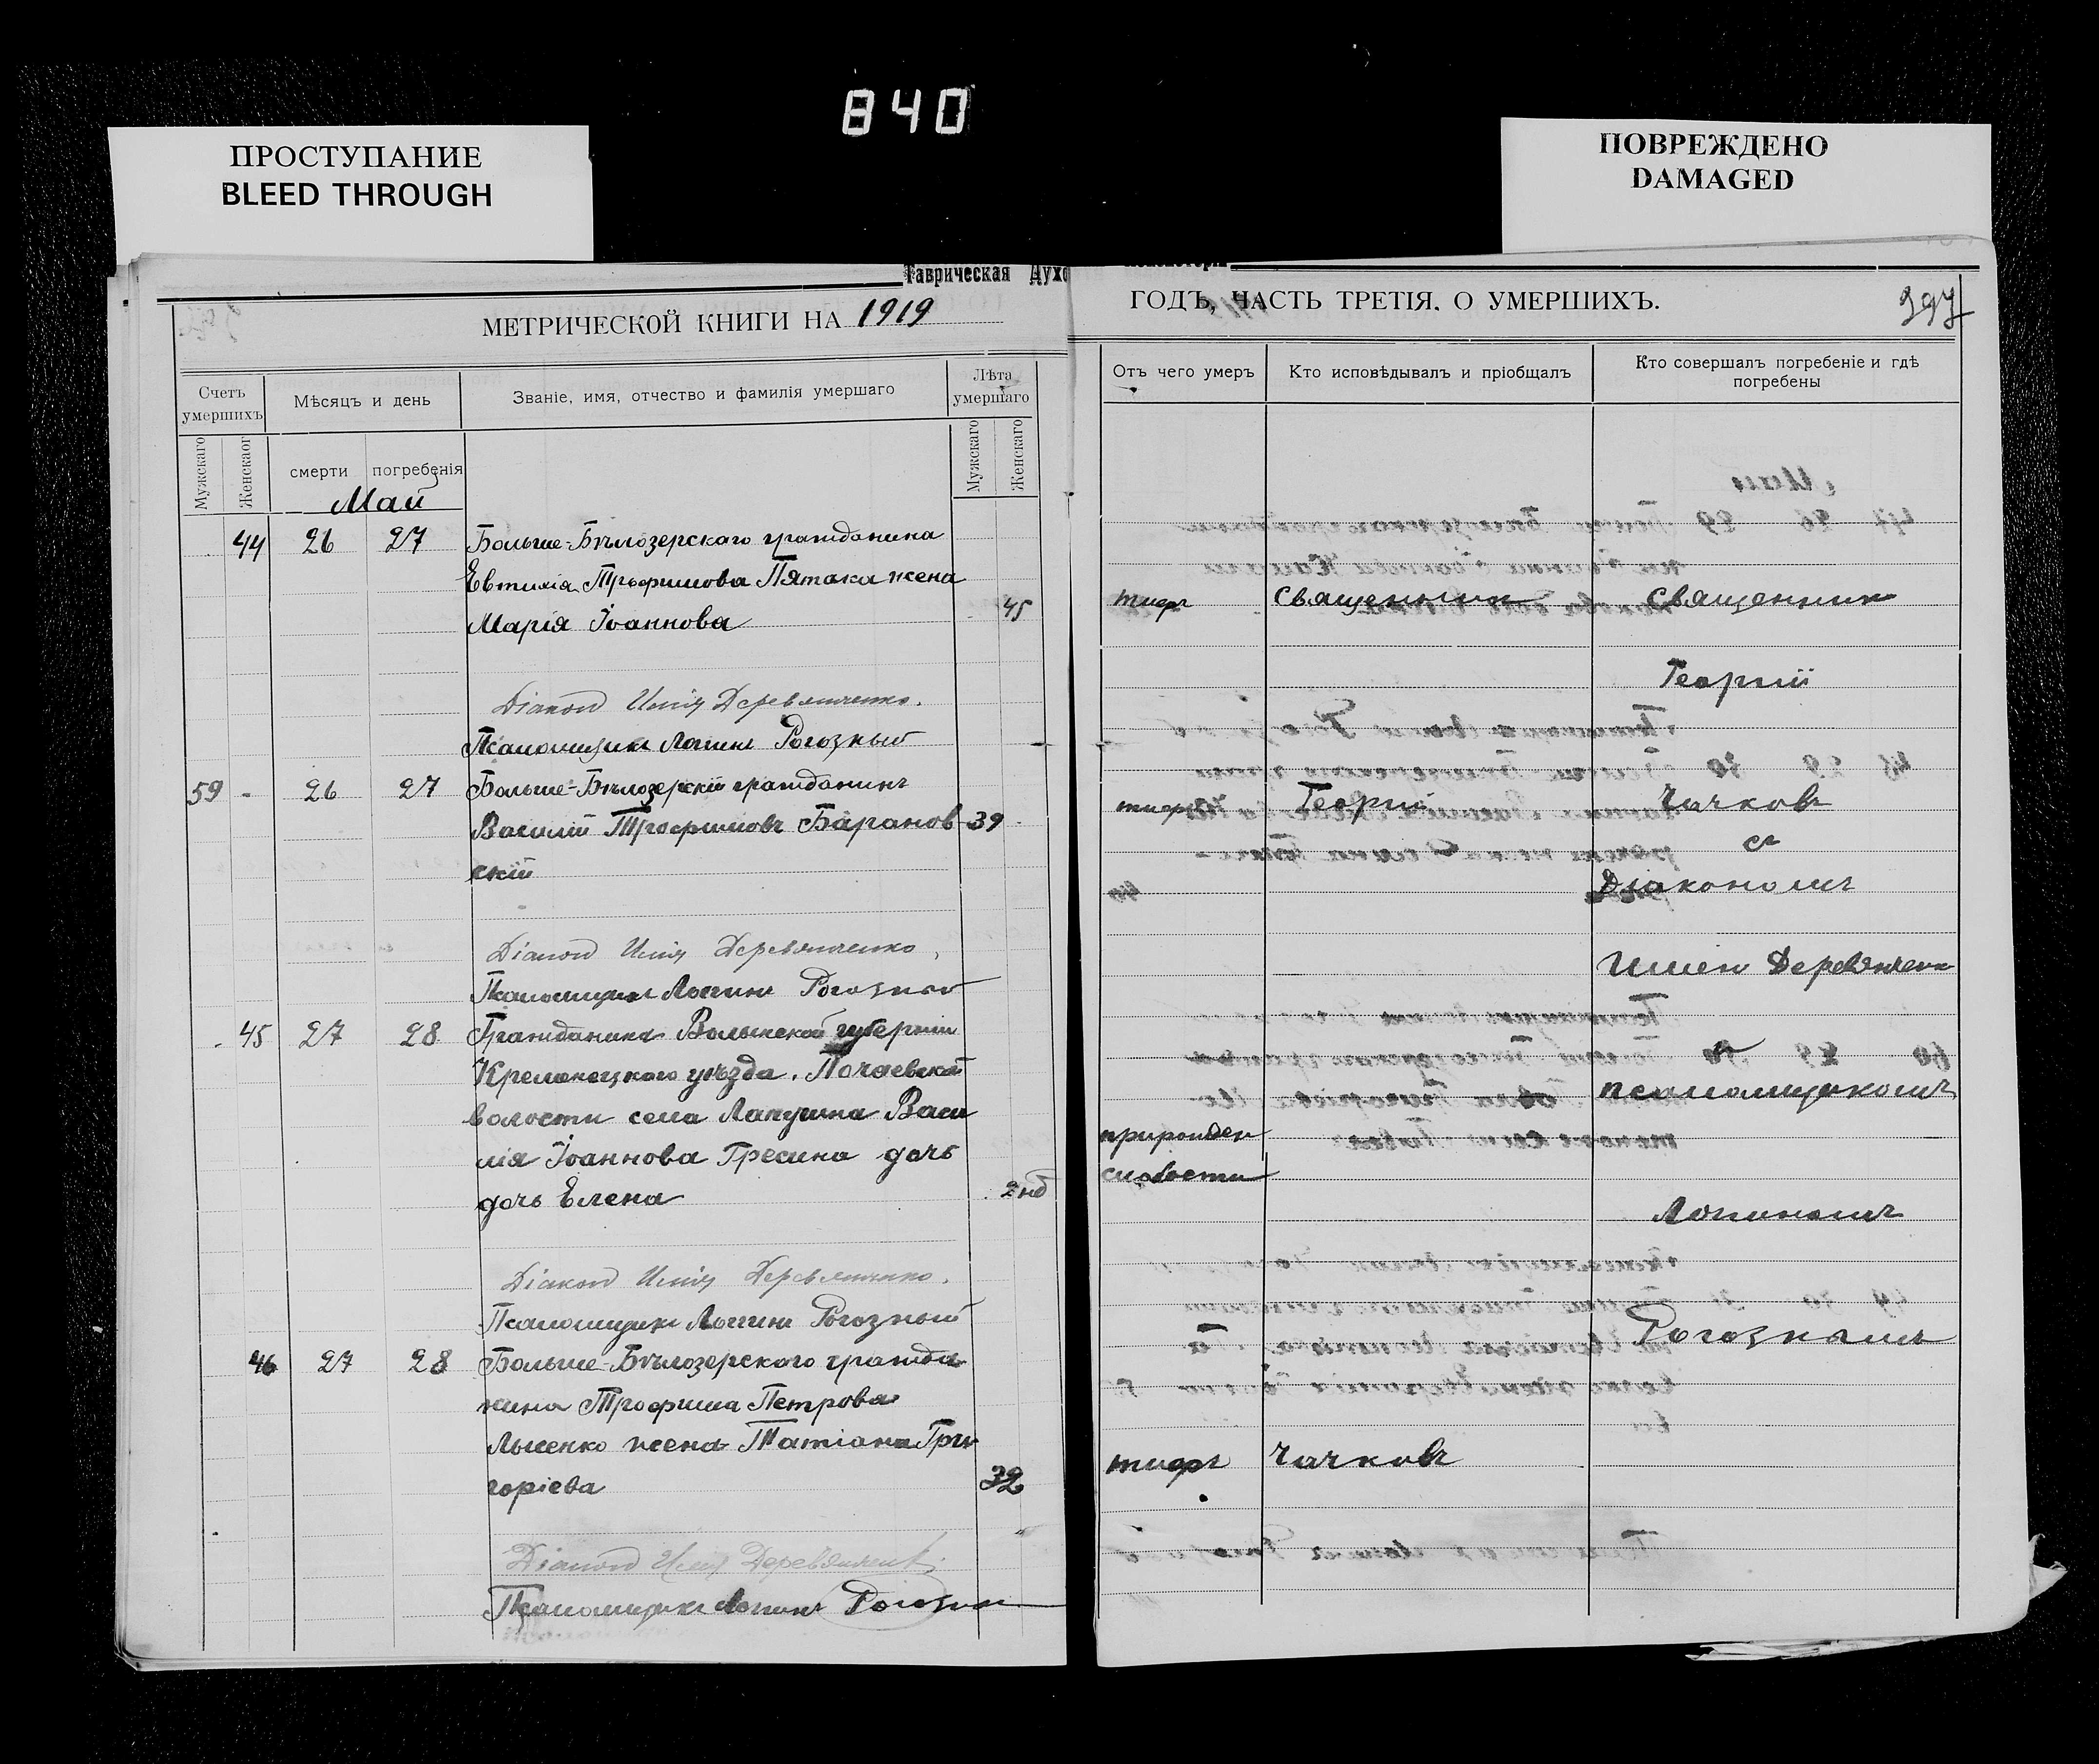 840
ПРОСТУПАНИЕ
BLEED THROUGH
ПОВРЕЖДЕНО
DAMAGED
Таврическая Духо
МЕТРИЧЕСКОЙ КНИГИ НА 1919
Счетъ умершихъ
Мѣсяцъ и день
Званіе, имя, отчество и фамилія умершаго
Лѣта умершаго
Мужскаго
Женскаог
смерти
погребенія
Мужскаго
Женскаго
Май
44 26 27 Больше-Бѣлозерскаго гражданина
Евтихія Трофимова Пятака жена
Марія Іоаннова 45
Діакон Илія Деревянченко.
Псаломщикъ Логинъ Рогозный
59 - 26 27 Больше-Бѣлозерскій гражданинъ
Василій Трофимовъ Баранов 39
скій
Діакон Илія Деревянченко,
Псаломщикъ Логинъ Рогозный
45 27 28 Гражданина Волынской губерніи
Кременецкого уѣзда, Почаевской
волости села Васи
лія Іоаннова дочь
дочь Елена 2 нд
Діакон Илія Деревянченко.
Псаломщикъ Логинъ Рогозный
46 27 28 Больше-Бѣлозерского гражда
нина Трофима Петрова
Лысенко жена Татіана Гри
горіева 32
Діакон Илія Деревянченко.
Псаломщикъ Логинъ Рогозный
ГОДЪ, ЧАСТЬ ТРЕТІЯ. О УМЕРШИХЪ.
397
Отъ чего умеръ
Кто исповѣдывалъ и пріобщалъ
Кто совершалъ погребеніе и гдѣ погребены
тифъ Священник Священник
Георгій
тифъ Георгій Чачковъ
съ
Діакономъ
Илиею Деревянченк
псаломщикомъ
природен
слабости
Логиномъ
Рогознымъ
тифъ Чачковъ